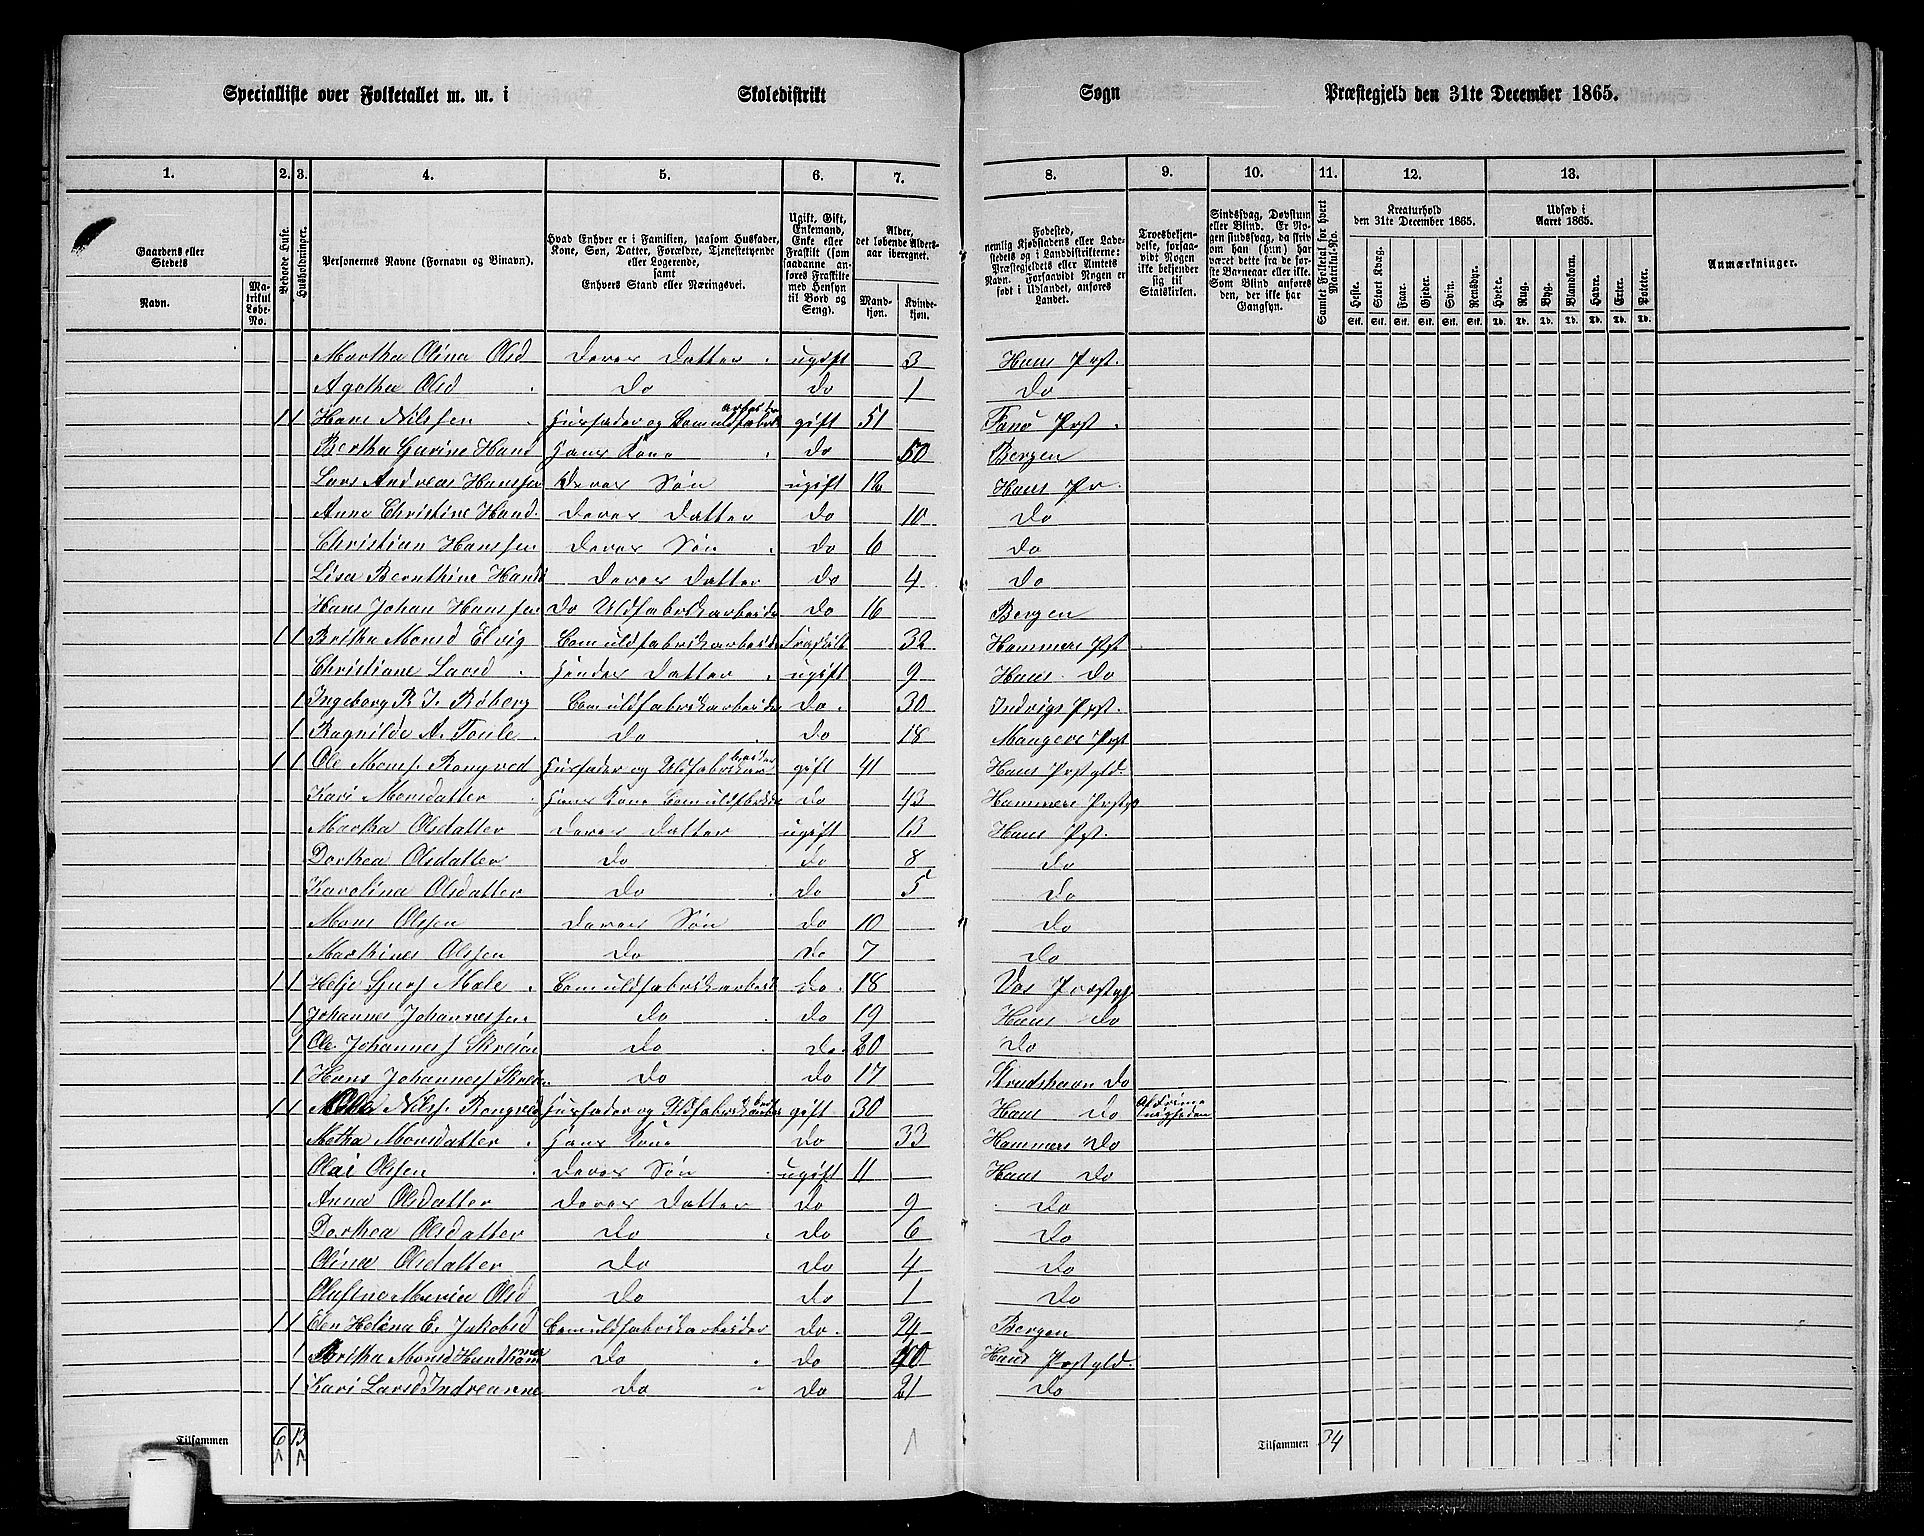 Specialliste over Folketallet m. m. i Skoledistrikt Sogn Præstegjeld den 31te December 1865.
1. 2. 3. 4. 5. 6. 7. 8. 9. 10. 11. 12. 13.
Gaardens eller Stedets
Navn.
Matrikul Løbe-No.
Beboede Huse.
Husholdninger.
Personernes Navne (Fornavn og Binavn).
Hvad Enhver er i Familien, saasom Husfader, Kone, Søn, Datter, Forældre, Tjenestetyende eller Logerende, samt Enhvers Stand eller Næringsvei.
Ugift, Gift, Enkemand, Enke eller Fraskilt (som saadanne anføres Fraskilte med Hensyn til Bord og Seng).
Alder, det løbende Aldersaar iberegnet.
Mandkjøn. Kvindekjøn.
Fødested, nemlig Kjøbstadens eller Ladestedets og i Landdistrikterne: Præstegjeldets eller Amtets Navn. Forsaavidt Nogen er født i Udlandet, anføres Landet.
Troesbekjendelse, forsaavidt Nogen ikke bekjender sig til Statskirken.
Sindssvag, Døvstum eller Blind. Er Nogen sindssvag, da skriv om han (hun) har været dette fra de første Barneaar eller ikke. Som Blind anføres den, der ikke har Gangsyn.
Samlet Folketal for hvert Matrikul-No.
Kreaturhold den 31te December 1865.
Udsæd i Aaret 1865.
Heste. Stort Kvæg. Faar. Gjeder. Svin. Rensdyr. Hvede. Rug. Byg. Blandkorn. Havre. Erter. Poteter.
Stk. Stk. Stk. Stk. Stk. Stk. Td. Td. Td. Td. Td. Td. Td.
Anmærkninger.
Martha Olina Olsd Deres Datter ugift 3 Haus Prst.
Agatha Olsd Do Do 1 Do
1 1 Hans Nilssen Husfader og Bomuldfabrik arbeider gift 51 Fanø Prst
Bertha Gurine Hansd Hans Kone Do 50 Bergen
Lars Andreas Hanssen Deres Søn ugift 12 Haus Pr.
Anna Christine Hansd. Deres Datter Do 10 Do
Christian Hanssen Deres Søn Do 6 Do
Lisa Bernthine Hansd Deres Datter Do 4 Do
Hans Johan Hanssen Do Uldfabrikarbeider Do 16 Bergen
1 1 Britha Monsd Elvig Bomuldfabrikarbeider Fraskilt 32 Hammers Prst
Christiane Larsd Hendes Datter ugift 9 Haus Do
1 Ingeborg R. J. Røberg Bomuldfabrikarbeider Do 30 Indvigs Prst.
1 Ragnilde A. Toule Do Do 18 Mangers Prst
1 1 Ole Mons. Rongved Husfader og Uldfabrikar beider gift 41 Haus Prstgld.
Kari Monsdatter Hans Kone Bomuldfbrkar Do 43 Hammers Prstgj
Martha Olsdatter Deres Datter ugift 13 Haus Prst.
Dorthea Olsdatter Do Do 8 Do
Karolina Olsdatter Do Do 5 Do
Mons Olssen Deres Søn Do 10 Do
Marthines Olssen Do Do 7 Do
1 1 Helje Sjurs Mæle Bomuldfabrikarbeid Do 18 Vos Præstgj
1 Johannes Johannessen Do Do 19 Haus Do
1 Ole Johannes Skreien Do Do 20 Do
1 Hans Johanness Skreien Do Do 17 Strudshavn Do
1 1 Ole Nilss. Rongved Husfader og Uldfabrikarbeid gift 30 Haus Do
Metha Monsdatter Hans Kone Do 33 Hammers Do
Olai Olssen Deres Søn ugift 11 Haus Do
Anna Olsdatter Deres Datter Do 9 Do
Dorthea Olsdatter Do Do 6 Do
Olina Olsdatter Do Do 4 Do
Olustina Maria Olsd Do Do 1 Do
1 1 Elen Helena E. Jakobsd Bomuldfabrikarbeider Do 24 Bergen
1 Britha Monsd Do Do 40 Haus Prstgld.
1 Kari Larsd Indreanne Do Do 21 Do
Tilsammen 6 13
Tilsammen 34